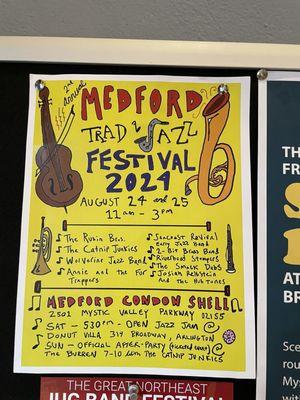 2nd Annual
MEDFORD
TRAD JAZZ
FESTIVAL
2024
AUGUST 24 AND 25
11am - 3pm
The Rubin Bros.
The Catnip Junkies
Wolverine Jazz Band
Annie and the Fur
Trappers
Suncoast Revival
Early Jazz Band
2-Bit Brass Band
Riverboat Stompers
The Smack Dabs
Josiah Reibstein
and the Hub Tones
MEDFORD CONDON SHELL
2501 MYSTIC VALLEY PARKWAY 02155
SAT - 530PM - OPEN JAZZ JAM @
DONUT VILLA 319 BROADWAY, ARLINGTON
SUN - OFFICIAL AFTER-PARTY (ticketed event) @
THE BURREN 7-10 with THE CATNIP JUNKIES
THE GREAT NORTHEAST
JUG BAND FESTIVAL
THE
FR
S
AT
BR
Sce
rou
Mys
with